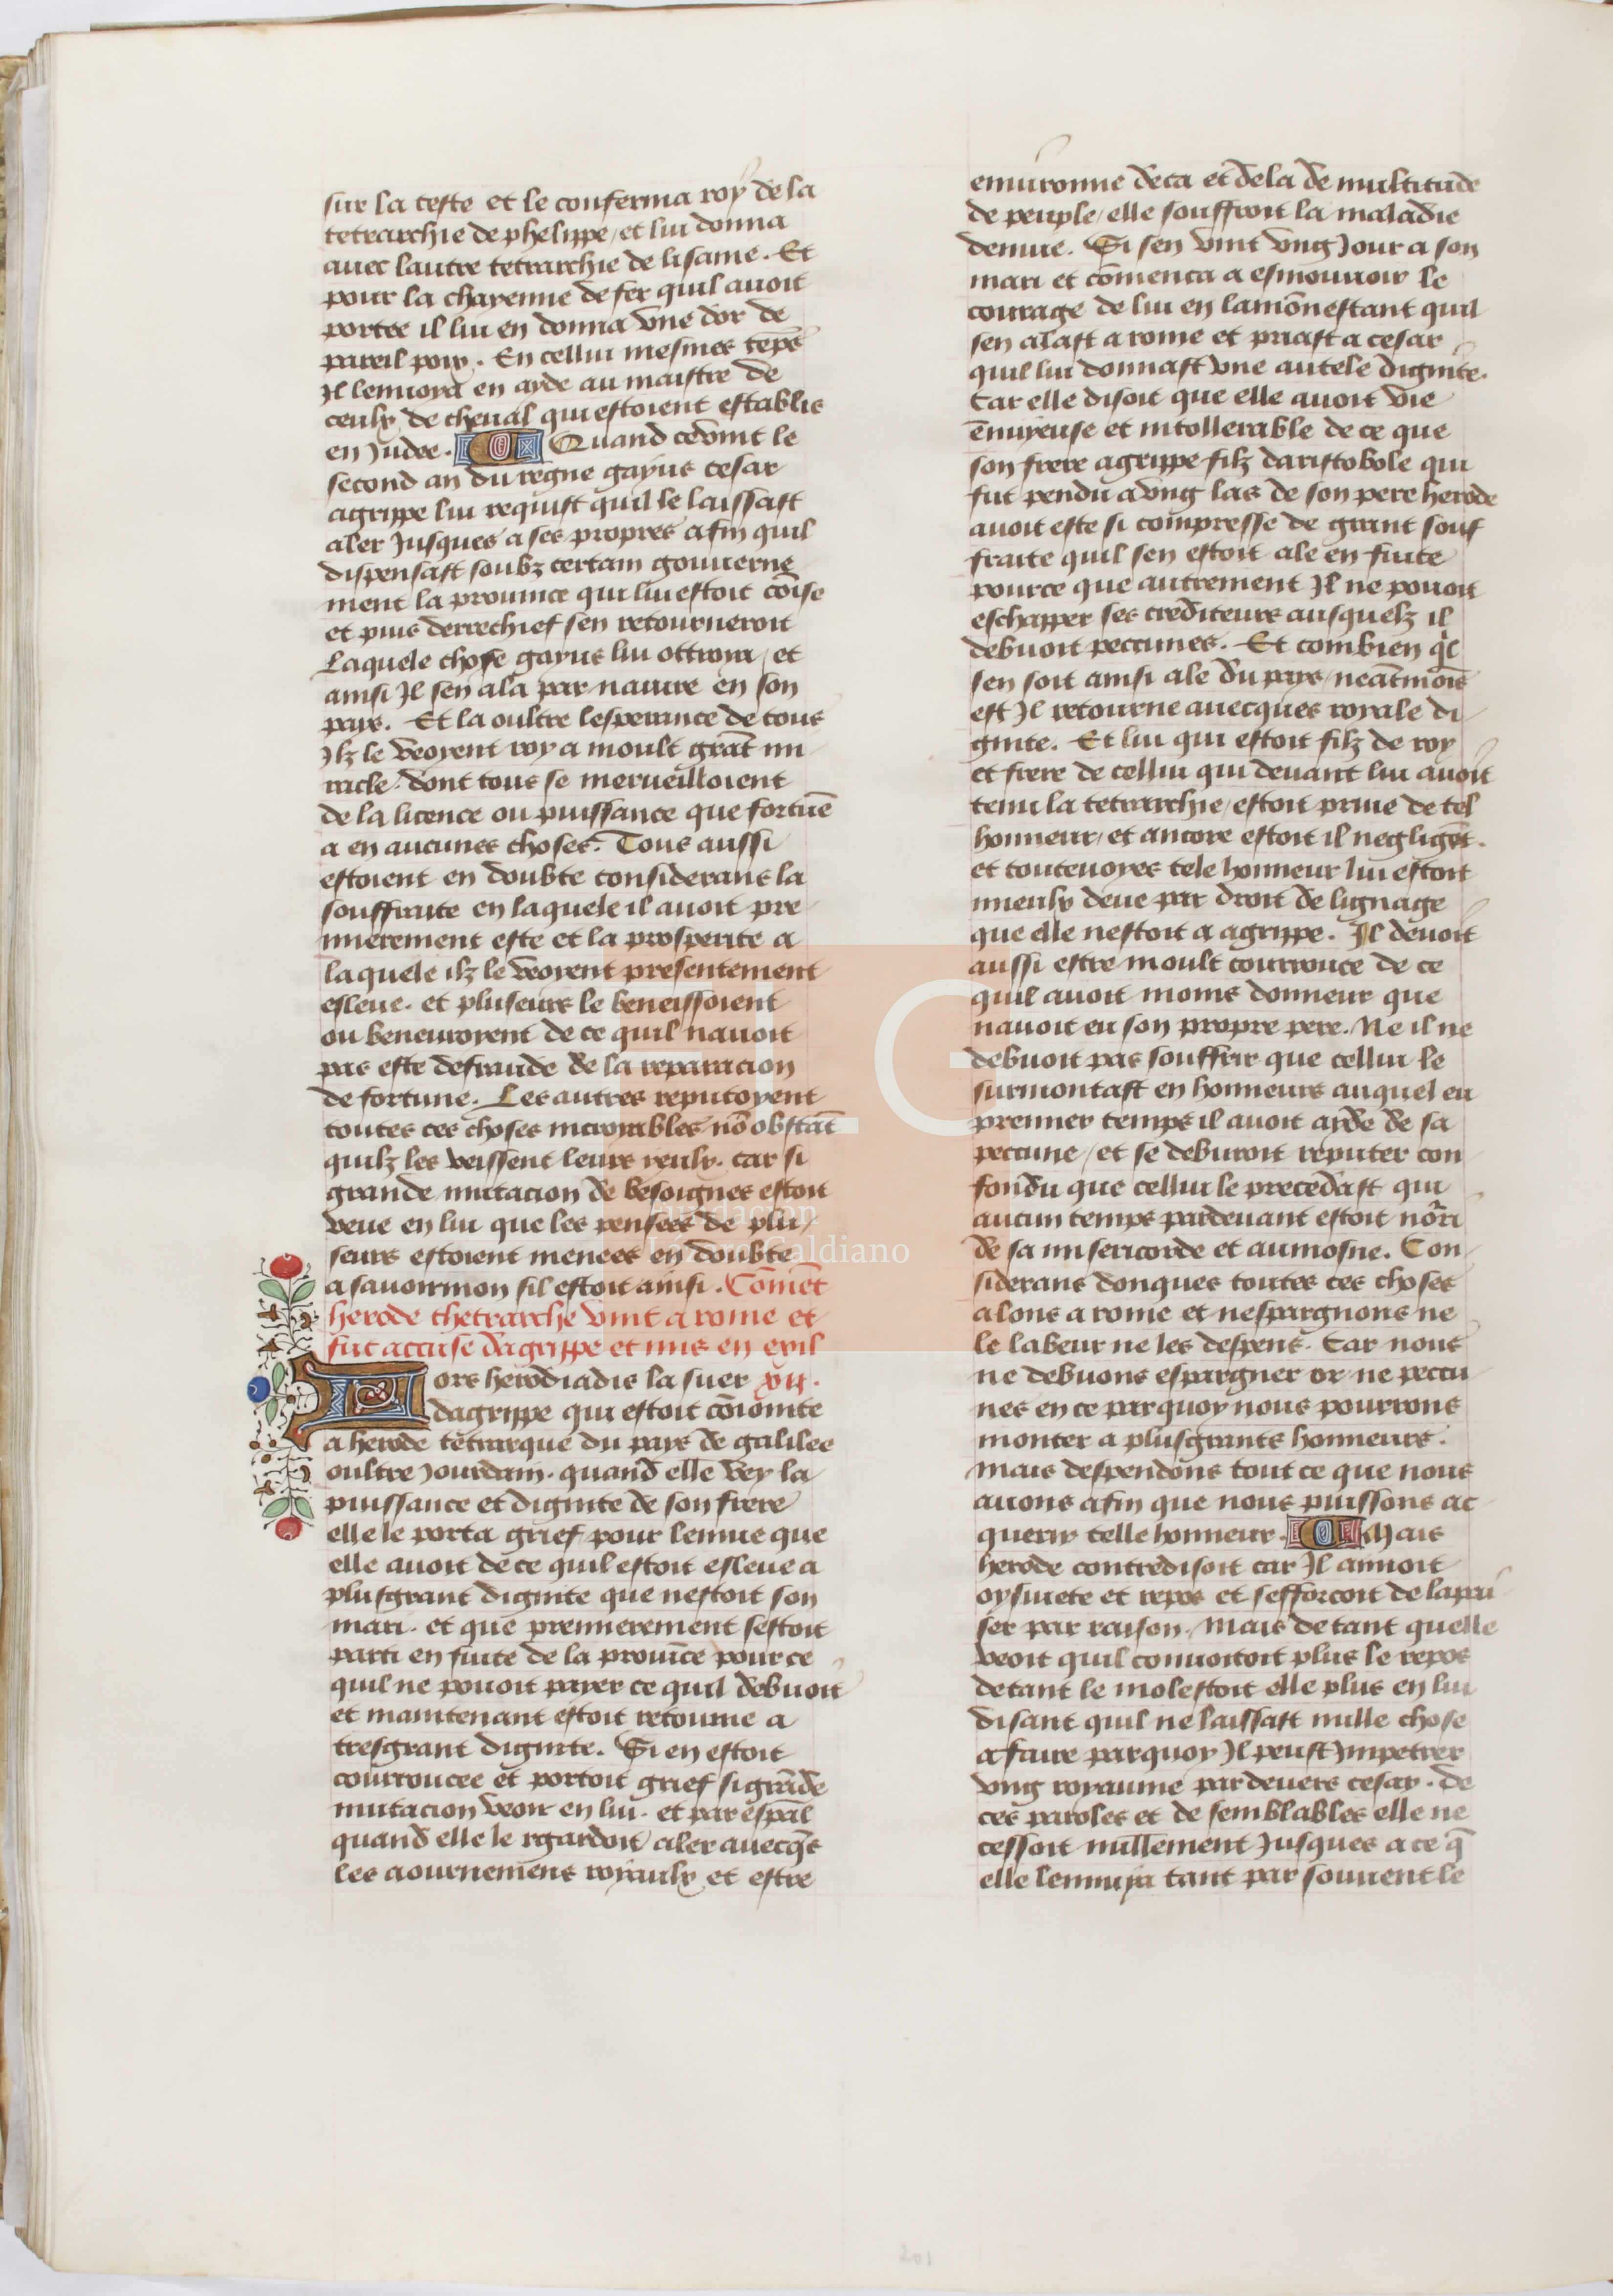 sur la teste et le conferma roy de la
tetrarchie de phelippe / et lui donna
auec lautre tetrarchie de lisanie. Et
pour la chayenne de fer quil auoit
portee il lui en donna vne dor de
pareil poix. En cellui mesmes tēps
Il lenuoya en ayde au maistre de
ceulx de cheual qui estoient establis
en Judee. Quand ce vint le
second an du regne gayus cesar
agrippe lui requist quil le laissast
aler Jusques a ses propres afin quil
dispensast soubz certain gouuerne
ment la prouince qui lui estoit cōise
et puis derrechief sen retourneroit
Laquele chose gayus lui ottroya / et
ainsi Il sen ala par nauire en son
pays. Et la oultre lesperance de tous
Ilz le veoyent roy a moult grāt mi
racle. dont tous se merueilloient
de la licence ou puissance que fortūe
a en aucunes choses. Tous aussi
estoient en doubte considerans la
souffraite en laquele il auoit pre
mierement este et la prosperite a
laquele ilz le veoyent presentement
esleue. et pluseurs le beneissoient
ou beneuroyent de ce quil nauoit
pas este defraude de la reparacion
de fortune. Les autres reputoyent
toutes ces choses incroyables nō obstāt
quilz les veissent leurs yeulx. car si
grande mutacion de besoignes estoit
veue en lui que les pensees de plu /
seurs estoient menees en doubte
a sauoirmon sil estoit ainsi. Cōmēt
herode thetrarche vint a rome et
fut accuse dagrippe et mis en exil
Lors herodiadis la suer vii.
dagrippe qui estoit cōiointe
a herode tetrarque du pays de galilee
oultre Jourdain. quand elle vey la
puissance et dignite de son frere
elle le porta grief pour lenuie que
elle auoit de ce quil estoit esleue a
plusgrant dignite que nestoit son
mari. et que premierement sestoit
parti en fuite de la prouīce pour ce
quil ne pouoit payer ce quil debuoit
et maintenant estoit retourne a
tresgrant dignite. Si en estoit
courroucee et portoit grief si grāde
mutacion veoir en lui. et par espāl
quand elle le rgardoit aler auecq̄s
les aournemens royaulx et estre
enuironne deca et dela de multitude
de peuple / elle souffroit la maladie
denuie. Si sen vint vng Jour a son
mari et cōmenca a esmouuoir le
courage de lui en lamōnestant quil
sen alast a rome et priast a cesar
quil lui donnast vne autele dignite.
Car elle disoit que elle auoit vie
ēnuyeuse et intollerable de ce que
son frere agrippe filz daristobole qui
fut pendu a vng las de son pere herode
auoit este si compresse de grant souf
fraite quil sen estoit ale en fuite
pource que autrement Il ne pouoit
eschapper ses crediteurs ausquelz il
debuoit peccunes. Et combien q̄l
sen soit ainsi ale du pays / neātmōis
est Il retourne auecques royale di
gnite. Et lui qui estoit filz de roy
et frere de cellui qui deuant lui auoit
tenu la tetrarchie / estoit priue de tel
honneur / et ancore estoit il negligēt.
et toutevoyes tele honneur lui estoit
mieulx deue par droit de lignage
que elle nestoit a agrippe. Il deuoit
aussi estre moult courrouce de ce
quil auoit moins donneur que
nauoit eu son propre pere. Ne il ne
debuoit pas souffrir que cellui le
surmontast en honneurs auquel en
premier temps il auoit ayde de sa
peccune / et se deburoit reputer con
fondu que cellui le precedast qui
aucun temps pardeuant estoit nōri
de sa misericorde et aumosne. Con
siderans donques toutes ces choses
alons a rome et nespargnons ne
le labeur ne les despens. Car nous
ne debuons espargner or ne peccu
nes en ce par quoy nous pourrons
monter a plusgrants honneurs.
mais despendons tout ce que nous
auons afin que nous puissons ac
querir telle honneur. Mais
herode contredisoit car Il aimoit
oysiuete et repos et sefforcoit de lapai
ser par raison. Mais de tant quelle
veoit quil conuoitoit plus le repos
de tant le molestoit elle plus en lui
disant quil ne laissast nulle chose
a faire par quoy Il peust Impetrer
vng royaume par deuers cesar. de
ces paroles et de semblables elle ne
cessoit nullement Jusques a ce q̄
elle lennuya tant par souuent le
Fundación
Lázaro Galdiano
201